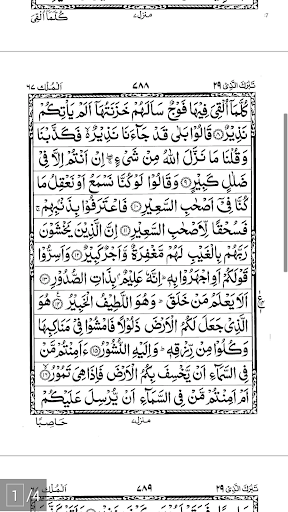 كُلَّمَآ اُلْقِىَ
منزل ٧
تَبٰرَكَ الَّذِىْ ٢٩
٧٨٨
اَلْمُلْك ٦٧
كُلَّمَآ اُلْقِىَ فِيْهَا فَوْجٌ سَاَلَهُمْ خَزَنَتُهَآ اَلَمْ يَاْتِكُمْ
نَذِيْرٌ ۝٨ قَالُوْا بَلٰى قَدْ جَآءَنَا نَذِيْرٌ ۙ فَكَذَّبْنَا
وَقُلْنَا مَا نَزَّلَ اللّٰهُ مِنْ شَىْءٍ ۚ اِنْ اَنْتُمْ اِلَّا فِىْ
ضَلٰلٍ كَبِيْرٍ ۝٩ وَقَالُوْا لَوْ كُنَّا نَسْمَعُ اَوْ نَعْقِلُ مَا
كُنَّا فِىْٓ اَصْحٰبِ السَّعِيْرِ ۝١٠ فَاعْتَرَفُوْا بِذَنْۢبِهِمْ ۚ
فَسُحْقًا لِّاَصْحٰبِ السَّعِيْرِ ۝١١ اِنَّ الَّذِيْنَ يَخْشَوْنَ
رَبَّهُمْ بِالْغَيْبِ لَهُمْ مَّغْفِرَةٌ وَّاَجْرٌ كَبِيْرٌ ۝١٢ وَاَسِرُّوْا
قَوْلَكُمْ اَوِ اجْهَرُوْا بِهٖ ؕ اِنَّهٗ عَلِيْمٌۢ بِذَاتِ الصُّدُوْرِ ۝١٣
اَلَا يَعْلَمُ مَنْ خَلَقَ ؕ وَهُوَ اللَّطِيْفُ الْخَبِيْرُ ۝١٤ هُوَ
الَّذِىْ جَعَلَ لَكُمُ الْاَرْضَ ذَلُوْلًا فَامْشُوْا فِىْ مَنَاكِبِهَا
وَكُلُوْا مِنْ رِّزْقِهٖ ؕ وَاِلَيْهِ النُّشُوْرُ ۝١٥ ءَاَمِنْتُمْ مَّنْ
فِى السَّمَآءِ اَنْ يَّخْسِفَ بِكُمُ الْاَرْضَ فَاِذَا هِىَ تَمُوْرُ ۝١٦
اَمْ اَمِنْتُمْ مَّنْ فِى السَّمَآءِ اَنْ يُّرْسِلَ عَلَيْكُمْ
منزل ٧
حَاصِبًا
1 /4
تَبٰرَكَ الَّذِىْ ٢٩
٧٨٩
اَلْمُلْك ٦٧